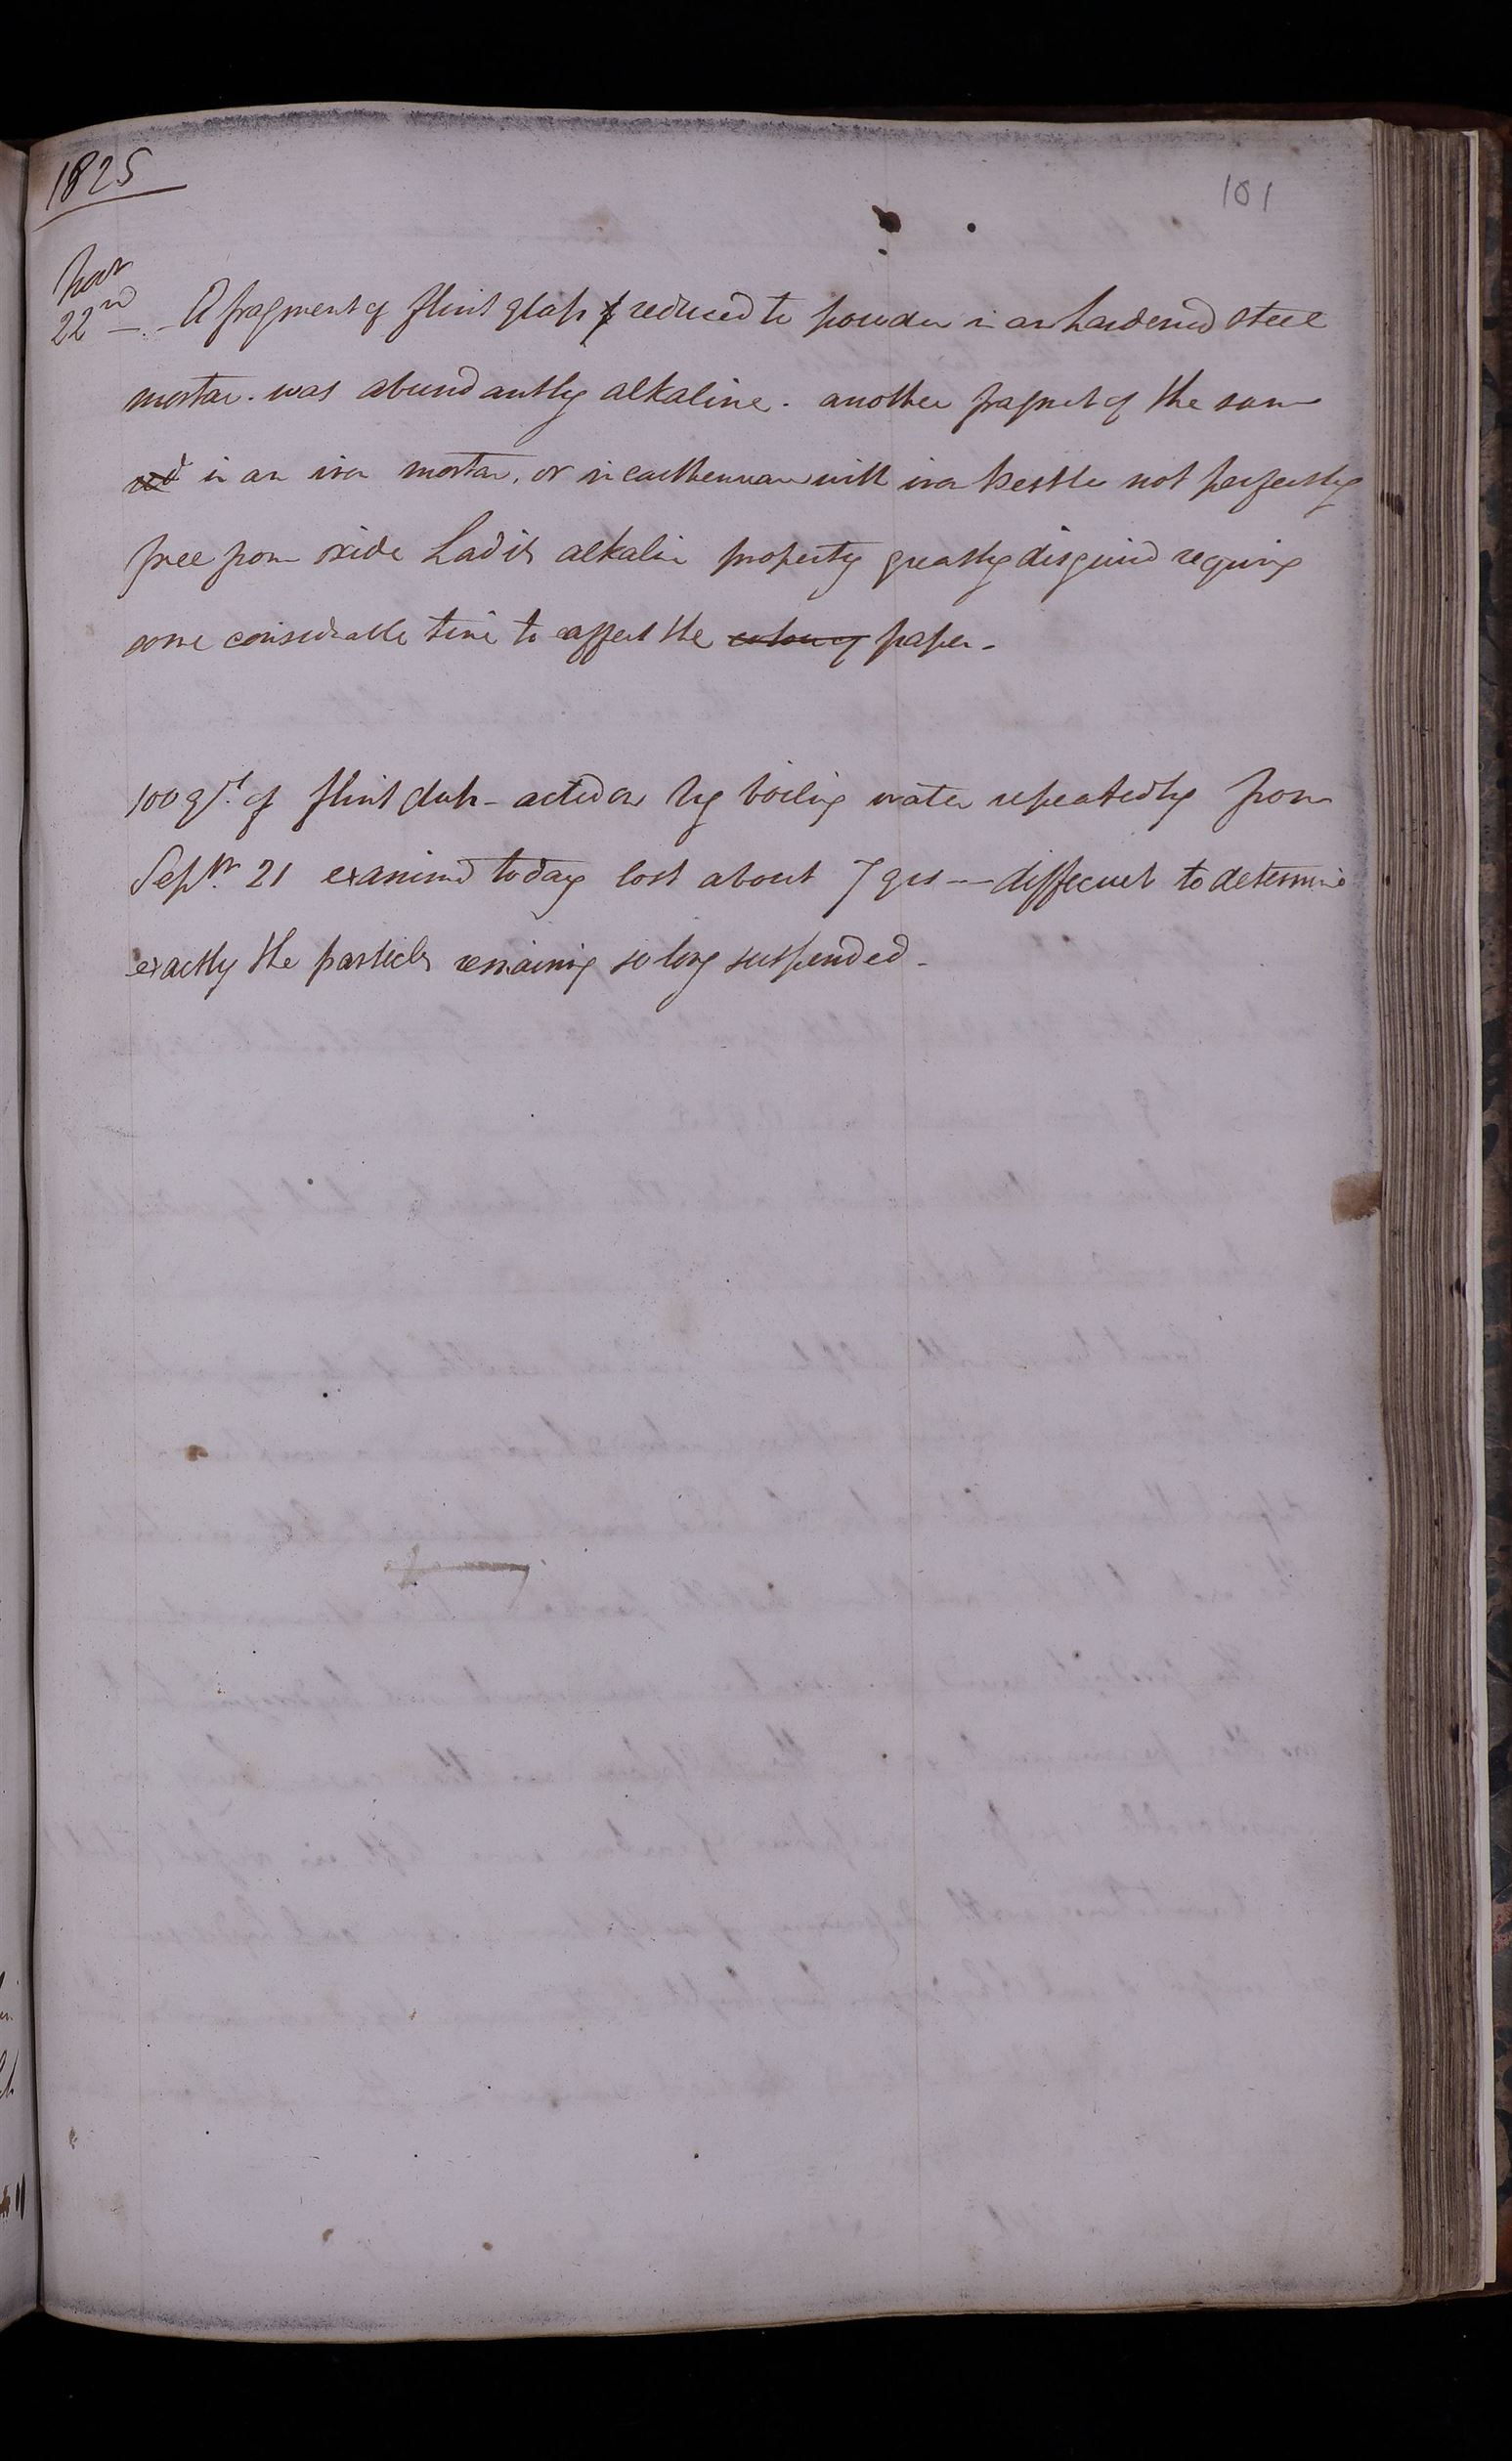 1825
101
Novr
22nd — A fragment of flint glass reduced to powder in an hardened steel
mortar. was abundantly alkaline. another fragmet of the same
rd in an iron mortar, or in earthenware with iron pestle not perfectly
free from oxide had its alkaline property greatly disguised requiring
some considerable time to affect the colour of paper.
100 grs. of flint glass acted on by boiling water repeatedly from
Septr. 21 examined today lost about 7 grs — difficult to determine
exactly the particles remaining so long suspended.